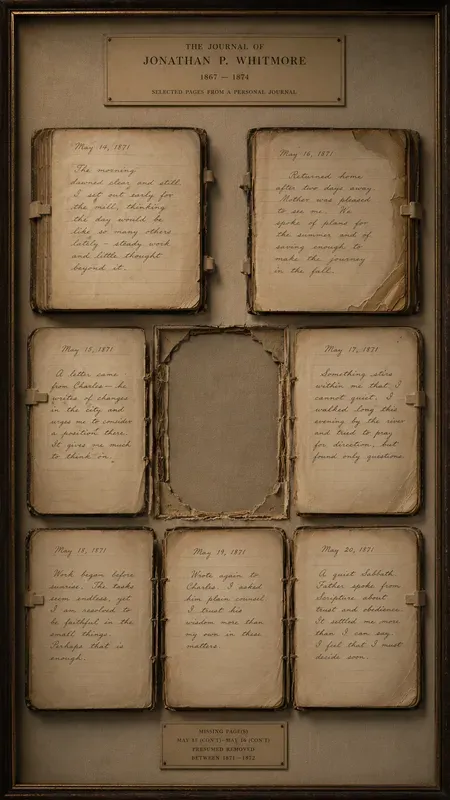 THE JOURNAL OF
JONATHAN P. WHITMORE
1867 — 1874
SELECTED PAGES FROM A PERSONAL JOURNAL
May 14, 1871
The morning
dawned clear and still.
I set out early for
the mill, thinking
the day would be
like so many others
lately – steady work
and little thought
beyond it.
May 16, 1871
Returned home
after two days away.
Mother was pleased
to see me. We
spoke of plans for
the summer and of
saving enough to
make the journey
in the fall.
May 15, 1871
A letter came
from Charles – he
writes of changes
in the city and
urges me to consider
a position there.
It gives me much
to think on.
May 17, 1871
Something stirs
within me that I
cannot quiet. I
walked long this
evening by the river
and tried to pray
for direction, but
found only questions.
May 18, 1871
Work began before
sunrise. The tasks
seem endless, yet
I am resolved to
be faithful in the
small things.
Perhaps that is
enough.
May 19, 1871
Wrote again to
Charles. I asked
him plain counsel.
I trust his
wisdom more than
my own in these
matters.
May 20, 1871
A quiet Sabbath.
Father spoke from
Scripture about
trust and obedience.
It settled me more
than I can say.
I feel that I must
decide soon.
MISSING PAGE(S)
PRESUMED REMOVED
BETWEEN 1871 – 1872